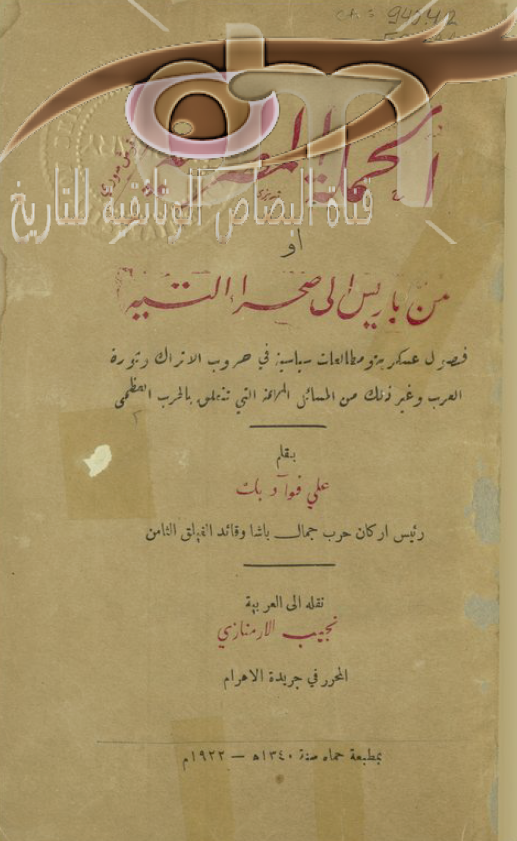 940.42
dm
الحملة المصرية
قناة البصاص الوثائقية للتاريخ
او
من باريس الى صحراء التيه
فصول عسكرية ومطالعات سياسية في حروب الاتراك وثورة
العرب وغير ذلك من المسائل الهامة التي تتعلق بالحرب العظمى
بقلم
علي فوآد بك
رئيس اركان حرب جمال باشا وقائد الفيلق الثامن
نقله الى العربية
نجيب الارمنازي
المحرر في جريدة الاهرام
بمطبعة حماه سنة ١٣٤٠ھ — ١٩٢٢م